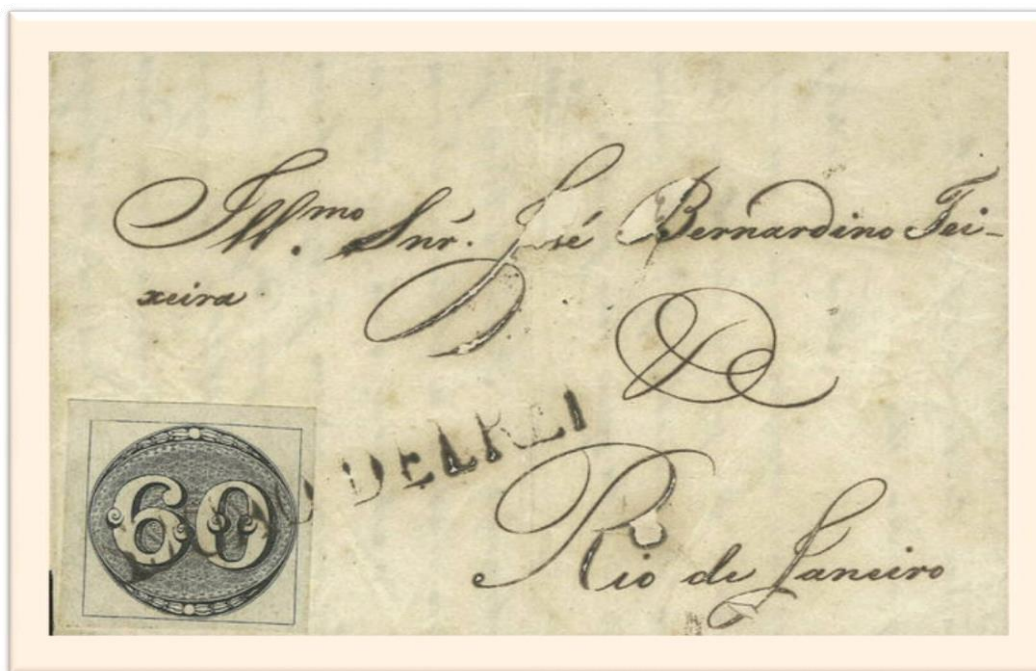 Ill.mo Snr. José Bernardino Tei-
xeira
DELREI
60
Rio de Janeiro